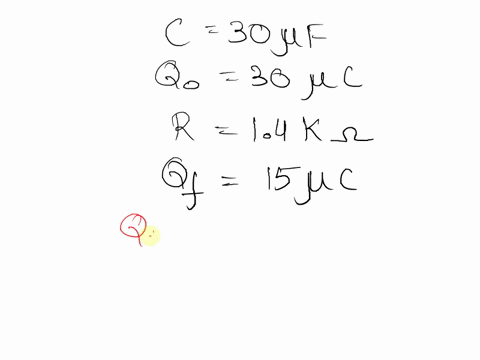 C = 30 μF
Q₀ = 30 μC
R = 1.4 K Ω
Q_f = 15 μC
Q